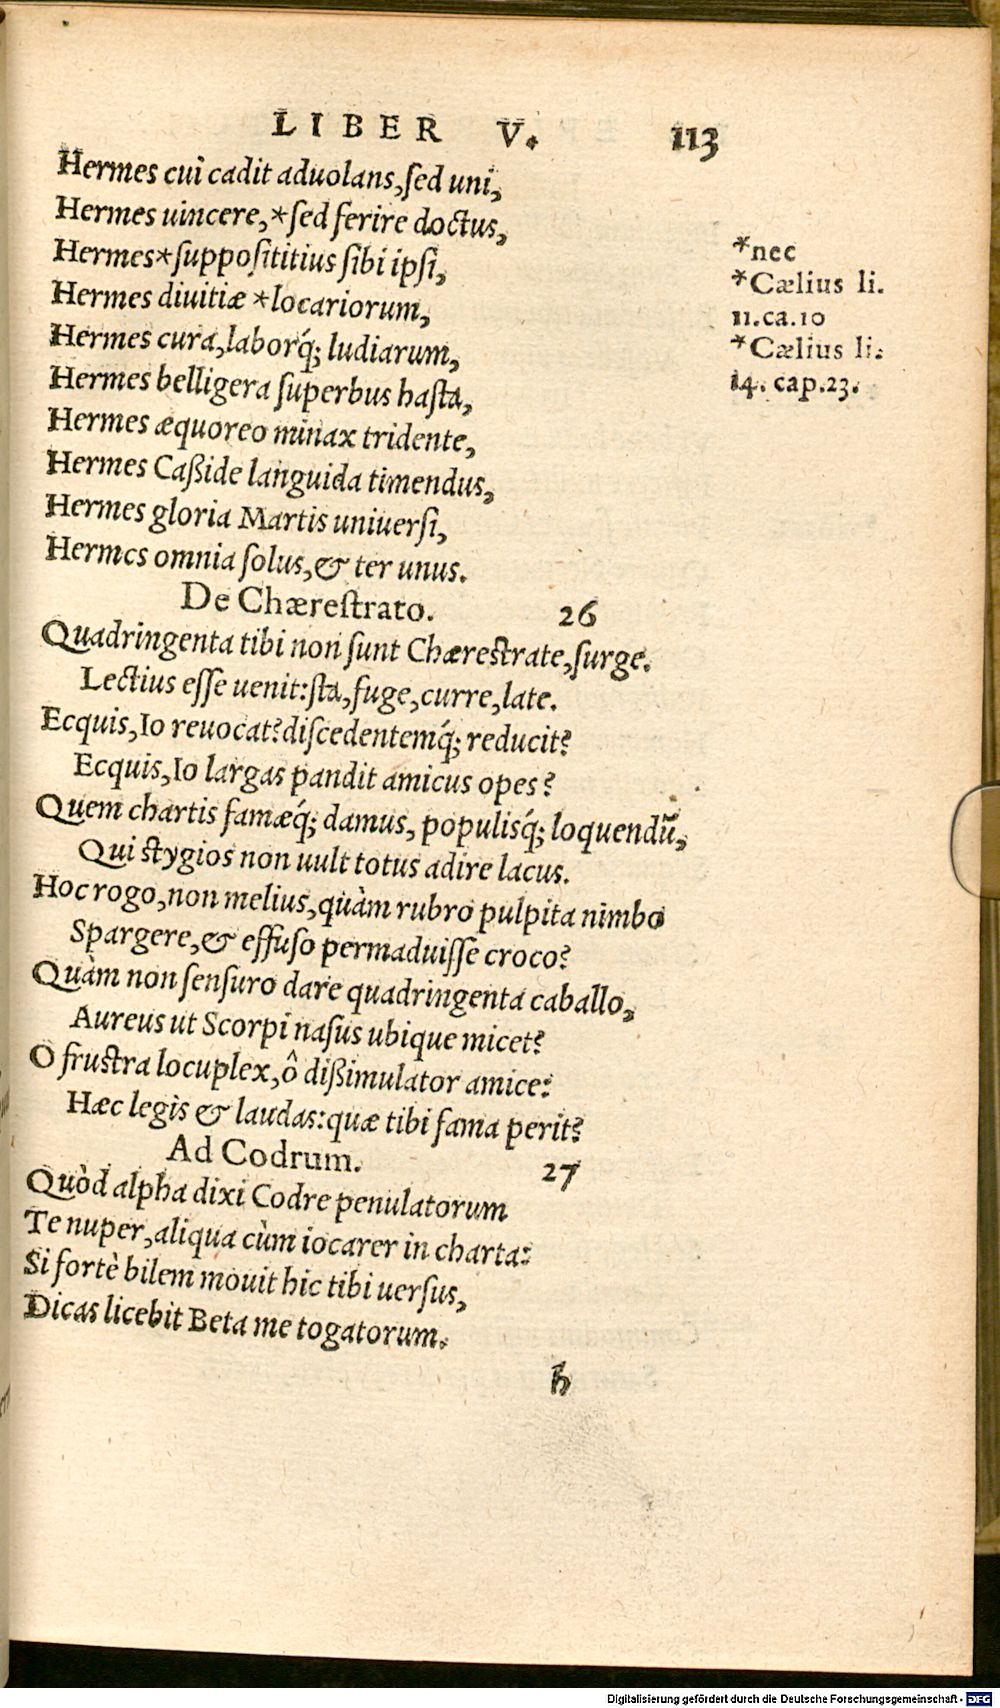 LIBER V. 113
Hermes cui cadit aduolans, sed uni,
Hermes uincere,*sed ferire doctus,
Hermes*supposititius sibi ipsi,
Hermes diuitiæ *locariorum,
Hermes cura, laborq́; ludiarum,
Hermes belligera superbus hasta,
Hermes æquoreo minax tridente,
Hermes Caßide languida timendus,
Hermes gloria Martis uniuersi,
Hermes omnia solus, & ter unus.
*nec
*Cælius li.
11.ca.10
*Cælius li.
14. cap.23.
De Chærestrato. 26
Quadringenta tibi non sunt Chærestrate, surge.
Lectius esse uenit: sta, fuge, curre, late.
Ecquis, Io reuocat? discedentemq́; reducit?
Ecquis, Io largas pandit amicus opes?
Quem chartis famæq́; damus, populisq́; loquendū,
Qui stygios non uult totus adire lacus.
Hoc rogo, non melius, quàm rubro pulpita nimbo
Spargere, & effuso permaduisse croco?
Quàm non sensuro dare quadringenta caballo,
Aureus ut Scorpi nasus ubique micet?
O frustra locuplex, ô dißimulator amice:
Hæc legis & laudas: quæ tibi fama perit?
Ad Codrum. 27
Quòd alpha dixi Codre penulatorum
Te nuper, aliqua cùm iocarer in charta:
Si fortè bilem mouit hic tibi uersus,
Dicas licebit Beta me togatorum.
h
Digitalisierung gefördert durch die Deutsche Forschungsgemeinschaft - DFG